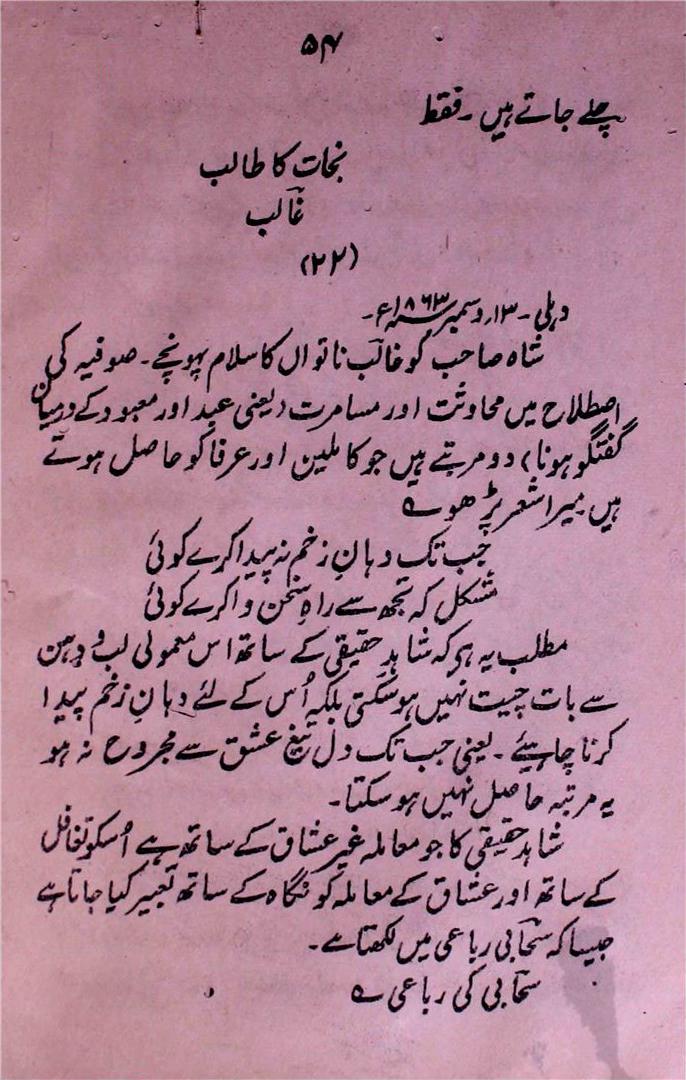 ۵۴
چلے جاتے ہیں ۔ فقط
نجات کا طالب
غالب
(۲۲)
دہلی ۔ ۱۳؍ دسمبر ۱۸۶۳ء ۔
شاہ صاحب کو غالب ناتواں کا سلام پہونچے ۔ صوفیہ کی
اصطلاح میں محادثت اور مسامرت (یعنی عبد اور معبود کے درمیان
گفتگو ہونا) دو مرتبے ہیں جو کاملین اور عرفا کو حاصل ہوتے
ہیں میرا شعر پڑھو ؎
جب تک دہانِ زخم نہ پیدا کرے کوئی
مشکل کہ تجھ سے راہِ سخن وا کرے کوئی
مطلب یہ ہر کہ شاہدِ حقیقی کے ساتھ اس معمولی لب و دہن
سے بات چیت نہیں ہو سکتی بلکہ اُس کے لئے دہانِ زخم پیدا
کرنا چاہیئے ۔ یعنی جب تک دل تیغِ عشق سے مجروح نہ ہو
یہ مرتبہ حاصل نہیں ہو سکتا ۔
شاہدِ حقیقی کا جو معاملہ غیر عشاق کے ساتھ ہے اُسکو تغافل
کے ساتھ اور عشاق کے معاملہ کو نگاہ کے ساتھ تعبیر کیا جاتا ہے
جیسا کہ سحابی رباعی میں لکھتا ہے ۔
سحابی کی رباعی ؎